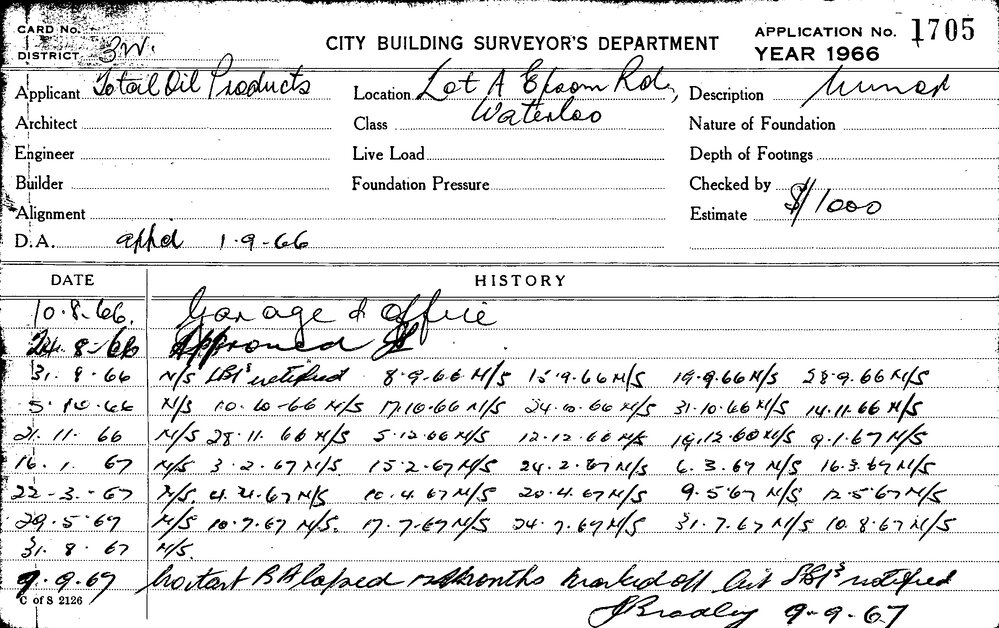 CARD No.
DISTRICT 3W.
CITY BUILDING SURVEYOR'S DEPARTMENT
APPLICATION No. 1705
YEAR 1966
Applicant Total Oil Products
Location Lot A Epsom Rd, Waterloo
Description Minor
Architect
Class
Nature of Foundation
Engineer
Live Load
Depth of Footings
Builder
Foundation Pressure
Checked by
Alignment
Estimate $/1000
D.A. appd 1.9.66
DATE HISTORY
10.8.66. Garage & office
24.8.66 Approved
31.8.66 N/S notified 8.9.66 N/S 15.9.66 N/S 19.9.66 N/S 28.9.66 N/S
5.10.66 N/S 10.10.66 N/S 17.10.66 N/S 24.10.66 N/S 31.10.66 N/S 14.11.66 N/S
21.11.66 N/S 28.11.66 N/S 5.12.66 N/S 12.12.66 N/S 19.12.66 N/S 9.1.67 N/S
16.1.67 N/S 3.2.67 N/S 15.2.67 N/S 24.2.67 N/S 6.3.67 N/S 16.3.67 N/S
22.3.67 N/S. 4.4.67 N/S 10.4.67 N/S 20.4.67 N/S 9.5.67 N/S 12.5.67 N/S
29.5.67 N/S 10.7.67 N/S. 17.7.67 N/S 24.7.67 N/S 31.7.67 N/S 10.8.67 N/S
31.8.67 N/S.
9.9.67 No start BA lapsed 12 months marked off notified
C of S 2126
J Bradley 9-9-67